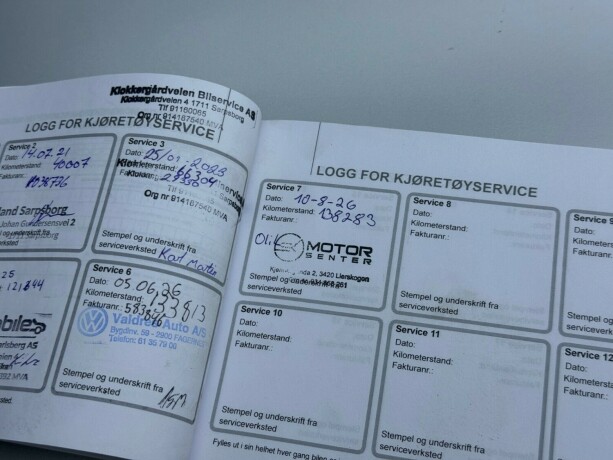 Klokkergårdveien Bilservice AS
Klokkergårdveien 4 1711 Sarpsborg
Tlf 91160065
Org nr 914167540 MVA
LOGG FOR KJØRETØYSERVICE
Service 2
Dato: 14.07.21
Kilometerstand: 40007
Fakturanr.:
land Sarpsborg
Johan Gundersensvei 2
underskrift fra
verksted
Service 3
Dato: 25/01-2023
Kilometerstand: 66304
Fakturanr.:
Org nr 914167540 MVA
Stempel og underskrift fra
serviceverksted
25
121844
bile
arlsberg AS
392 MVA
krift fra
sted
Service 6
Dato: 05.06.26
Kilometerstand: 133813
Fakturanr.: 583846
Valdres Auto A/S
Bygdinv. 59 - 2900 FAGERNES
Telefon: 61 35 79 00
Stempel og underskrift fra
serviceverksted
LOGG FOR KJØRETØYSERVICE
Service 7
Dato: 10-8-26
Kilometerstand: 138283
Fakturanr.:
MOTOR
SENTER
2, 3420 Lierskogen
Stempel og underskrift fra
serviceverksted
Service 8
Dato:
Kilometerstand:
Fakturanr.:
Stempel og underskrift fra
serviceverksted
Service 9
Dato:
Kilom
Faktu
Stemp
servic
Service 10
Dato:
Kilometerstand:
Fakturanr.:
Stempel og underskrift fra
serviceverksted
Service 11
Dato:
Kilometerstand:
Fakturanr.:
Stempel og underskrift fra
serviceverksted
Service 12
Dato:
Kilomet
Faktura
Stempel
servicev
Fylles ut i sin helhet hver gang bilen er